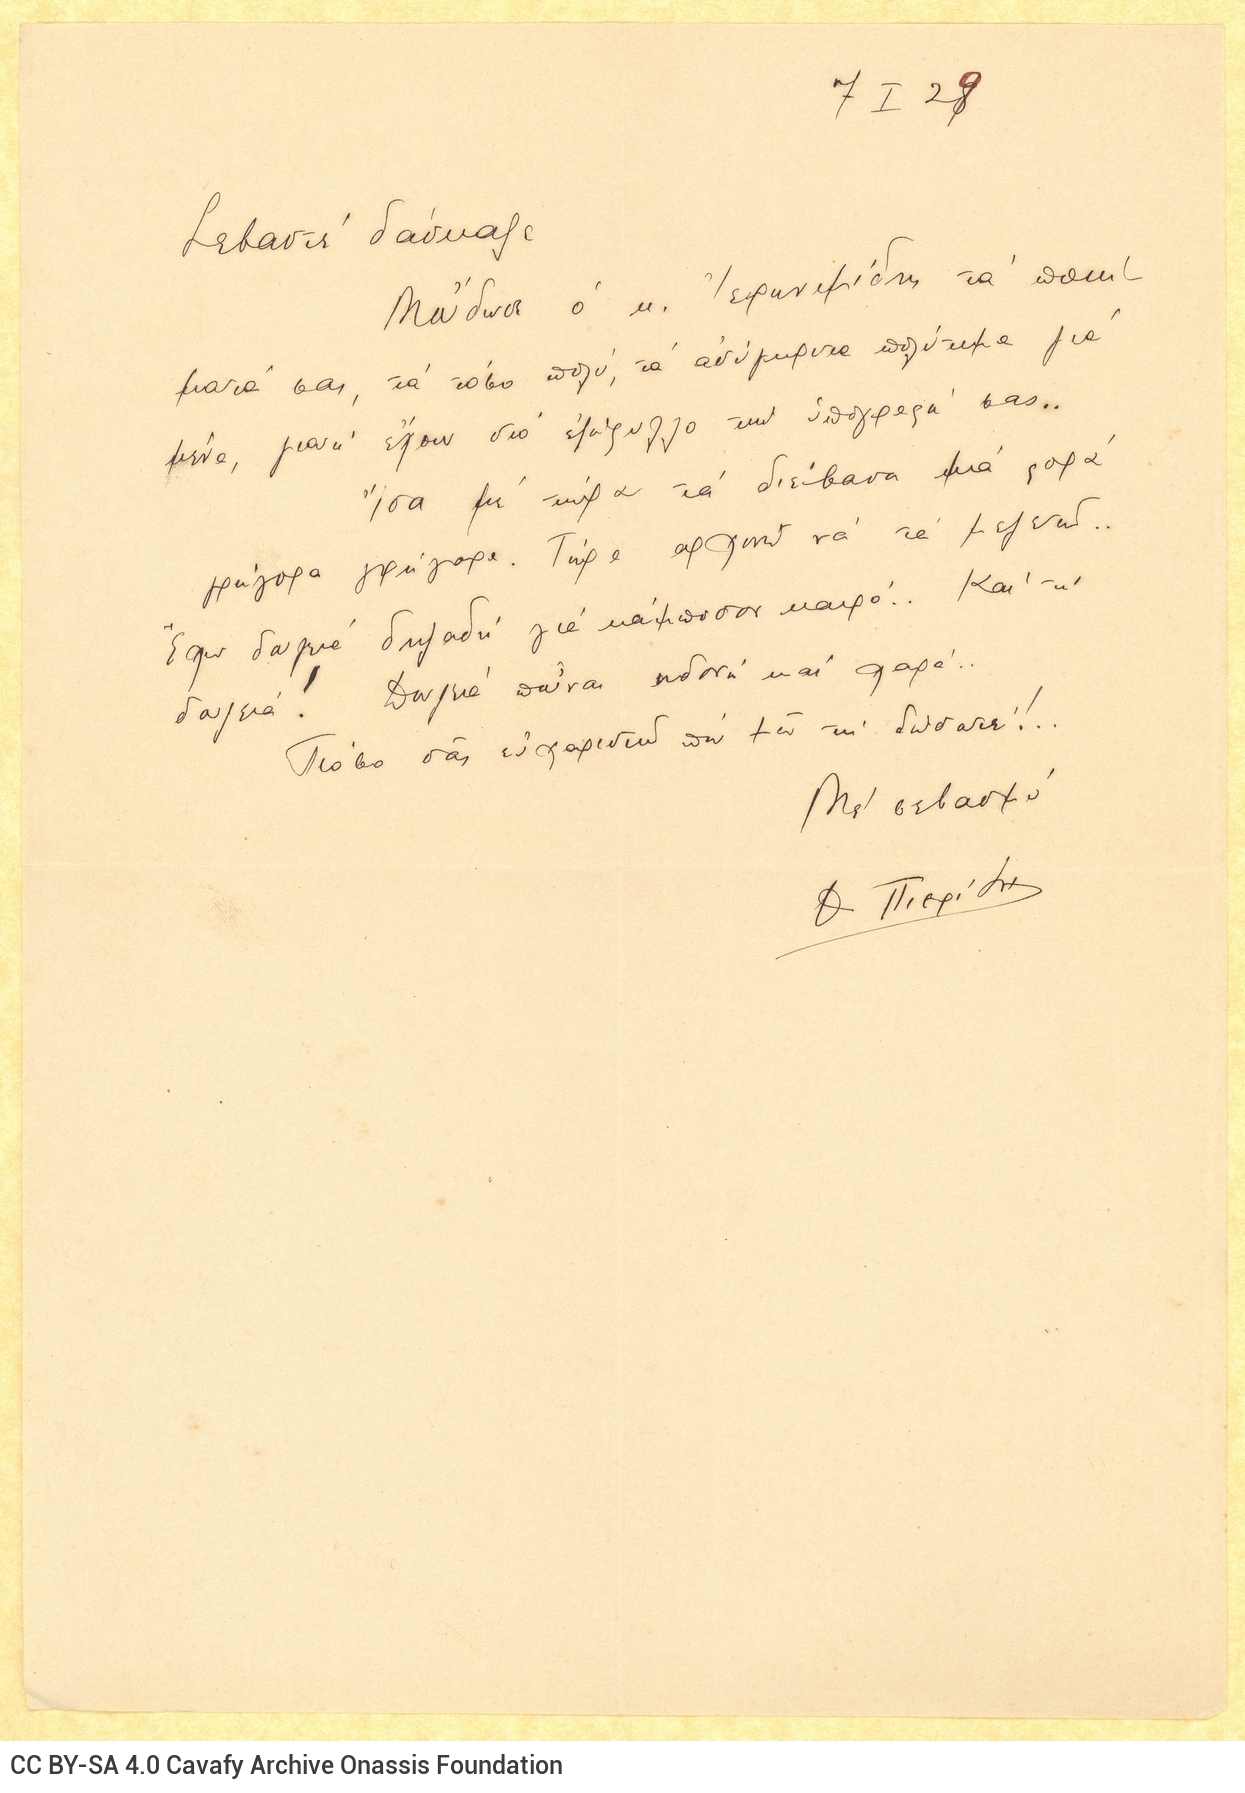 7 I 29
Σεβαστέ δάσκαλε
Μοὔδωσε ὁ κ. Ἱερωνυμίδης τὰ ποιή
ματά σας, τὰ τόσο πολύ, τὰ ἀσύγκριτα πολύτιμα γιὰ
μένα, γιατὶ ἔχουν στὸ ἐξώφυλλο τὴν ὑπογραφή σας..
Ἴσα μὲ τώρα τὰ διάβασα μιὰ φορὰ
γρήγορα γρήγορα. Τώρα ἀρχινῶ νὰ τὰ μελετῶ..
Ἔχω δουλειὰ δηλαδὴ γιὰ κάμποσον καιρό.. Καὶ τί
δουλειά! Δουλειὰ ποὖναι ἡδονὴ καὶ χαρά..
Πόσο σᾶς εὐχαριστῶ ποὺ μοῦ τὴ δώσατε!..
Μὲ σεβασμό
Θ Πιερίδης
CC BY-SA 4.0 Cavafy Archive Onassis Foundation